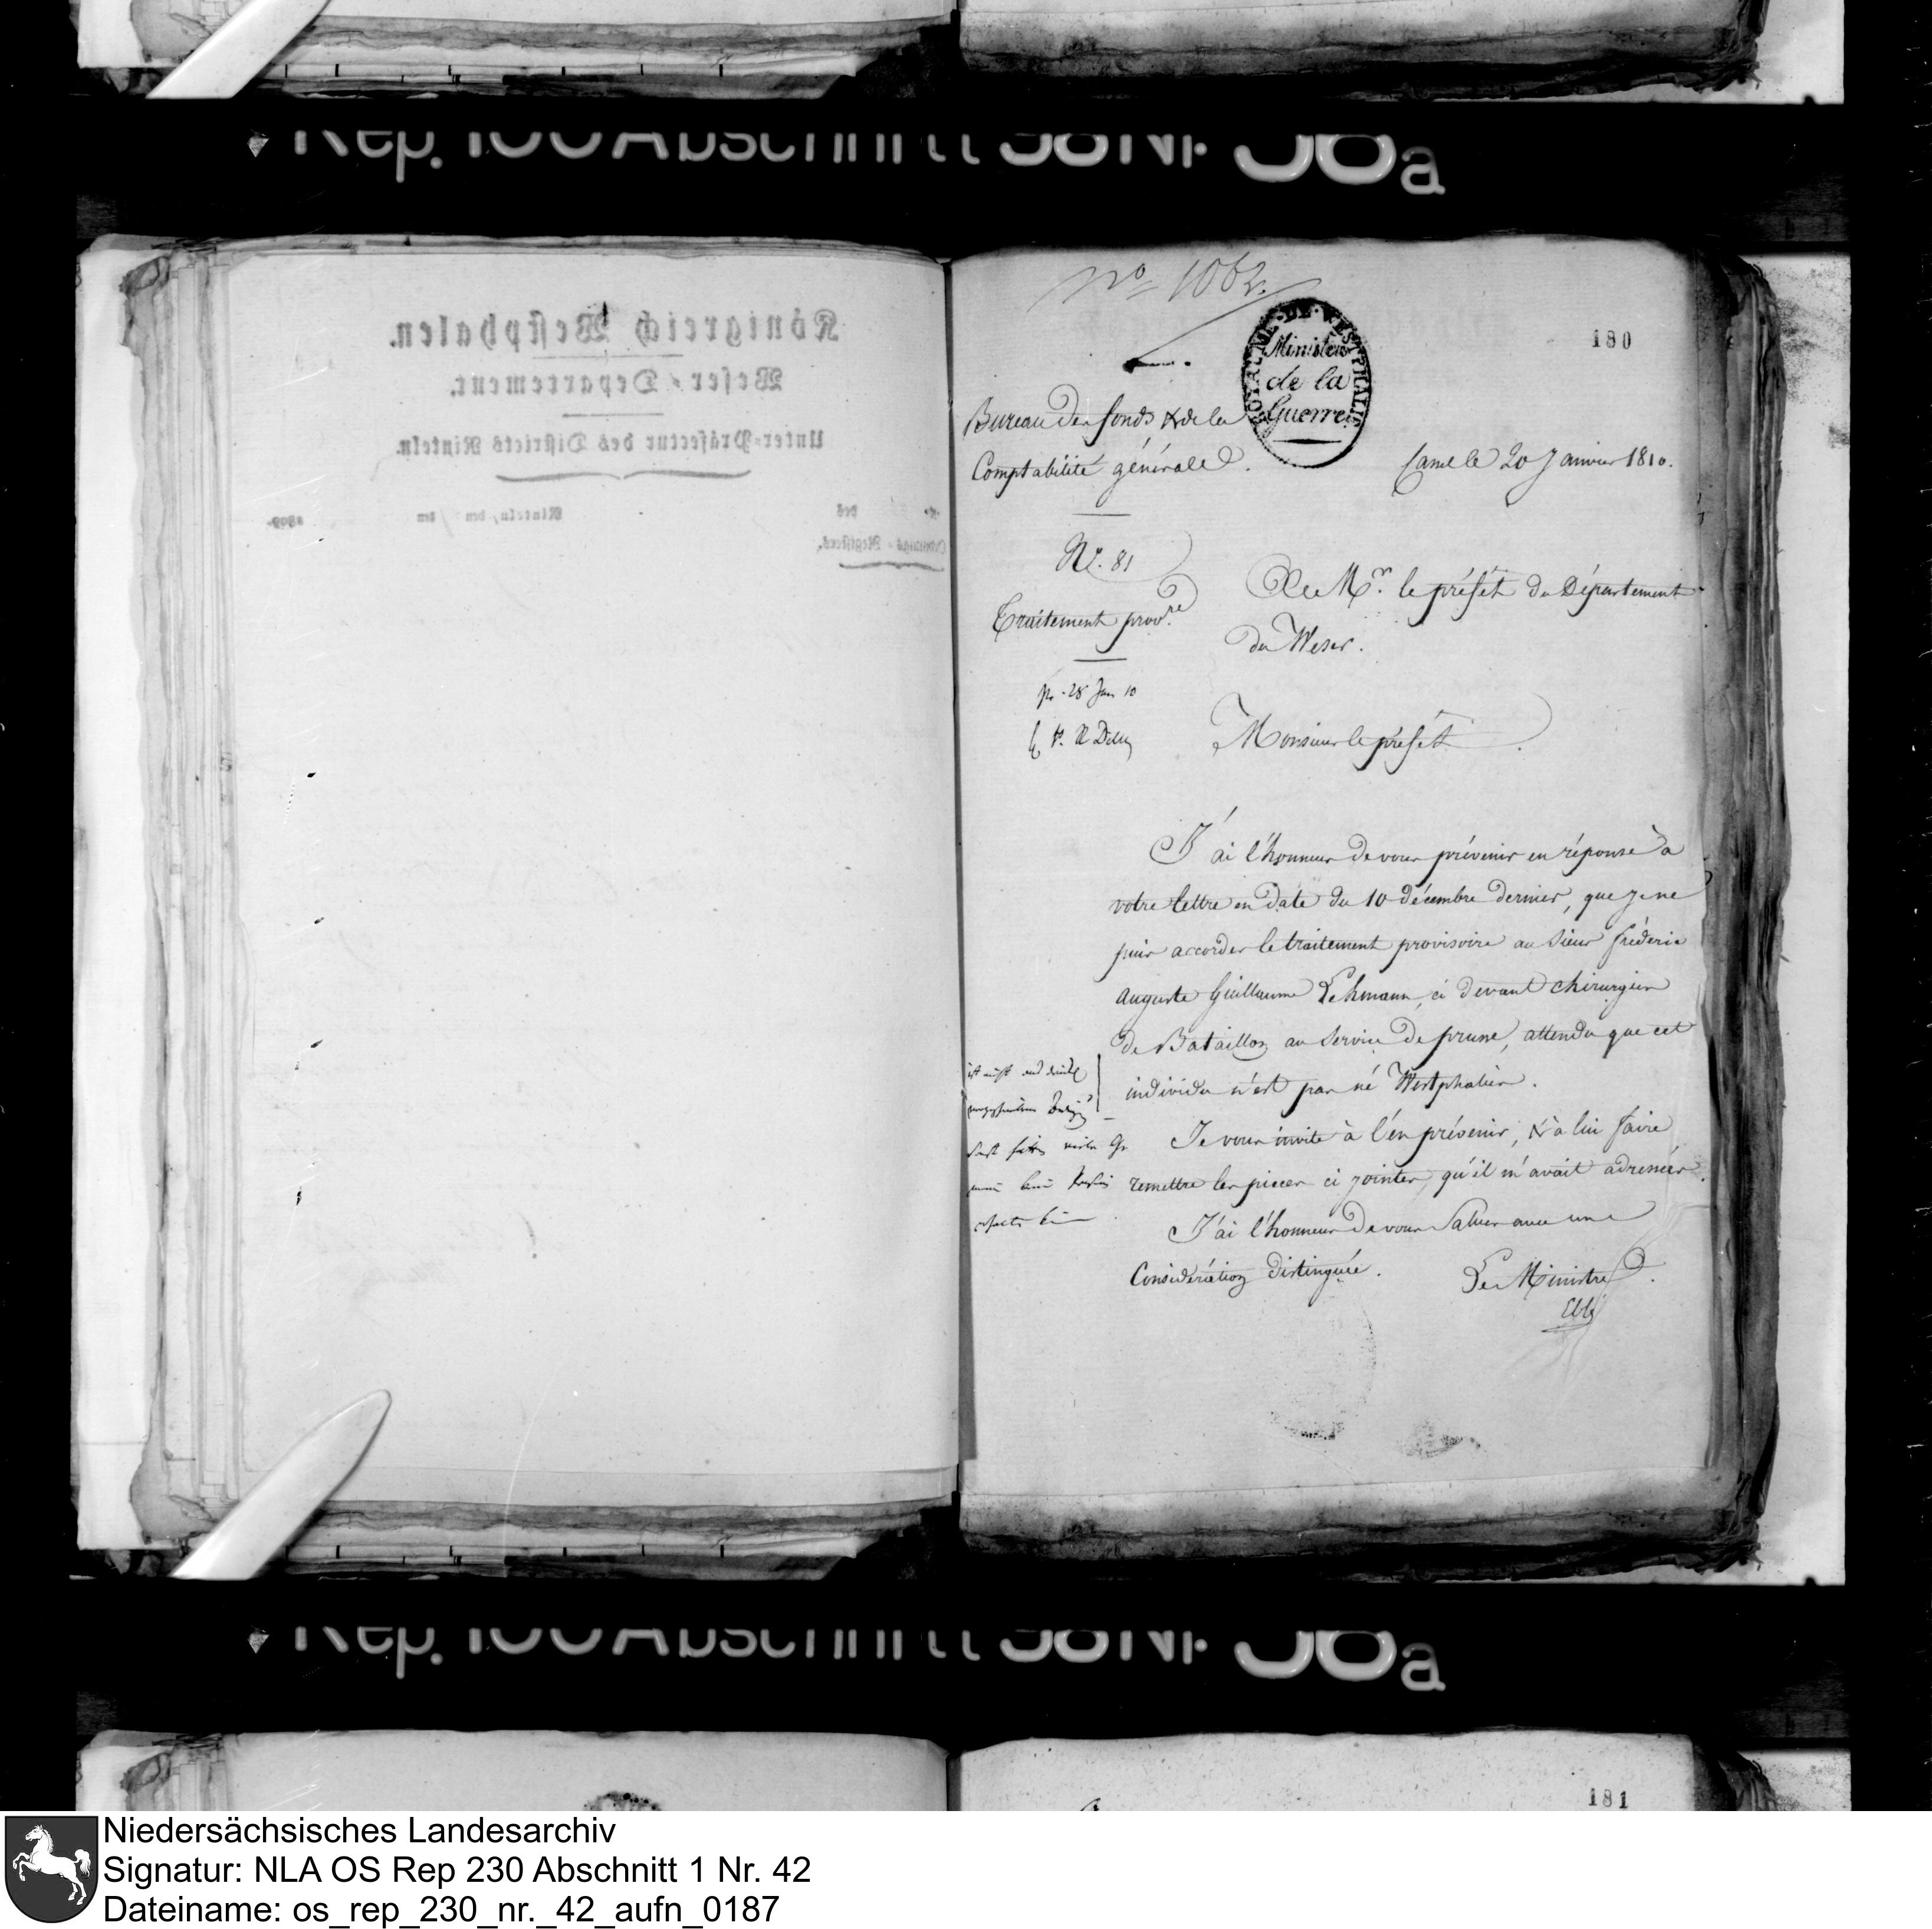 Rep. 100 Abschnitt 58 Nr 38a
Königreich Westphalen.
Weser-Departement.
Unter-Präfectur des Districts Rinteln.
des
Rinteln, den ten 1809.
Registers.
No 1062.
180
ROYAUME DE WESTPHALIE
Ministère
de la
Guerre
Bureau des fonds & de la
Comptabilité générale.
Cassel le 20 Janvier 1810.
No. 81
Traitement provre.
A Mr. le préfét du Département
du Weser.
pr. 28 Jan 10
Monsieur le préfét
J'ai l'honneur de vous prévenir en réponse à
votre lettre en date du 10 décembre dernier, que je ne
puis accorder le traitement provisoire au Sieur fréderic
Auguste Guillaume Lehmann, ci devant chirurgien
de Bataillon au Service de prusse, attendu que cet
individu n'est pas né Westphalien.
Je vous invite à l'en prévenir, & à lui faire
remettre les pieces ci jointes, qu'il m'avait adressées.
J'ai l'honneur de vous Saluer avec une
Considerátion distinguée.
Le Ministre
Eblé
Rep. 100 Abschnitt 58 Nr 38a
181
Niedersächsisches Landesarchiv
Signatur: NLA OS Rep 230 Abschnitt 1 Nr. 42
Dateiname: os_rep_230_nr._42_aufn_0187